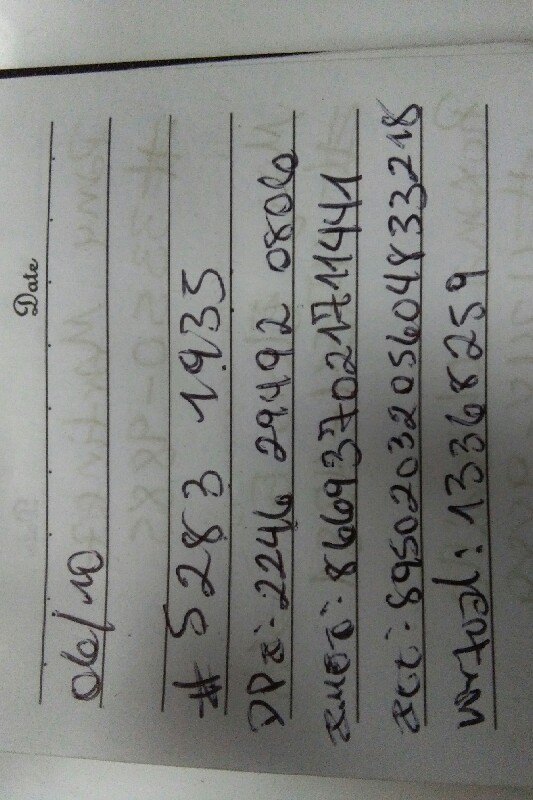 Date
06/10
# 5283 1935
DPI: 2246 29492 0806
IMEI: 866937021711441
ICC: 8950203205604833218
virtual: 13368259